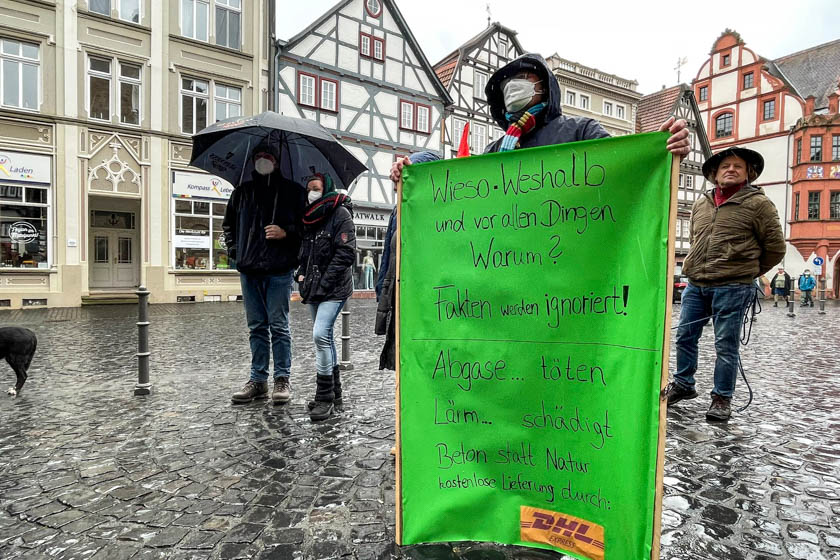 Wieso · Weshalb
und vor allen Dingen
Warum?
Fakten werden ignoriert!
Abgase... töten
Lärm... schädigt
Beton statt Natur
kostenlose Lieferung durch:
DHL
EXPRESS
Laden
Kompass Leben
ATWALK